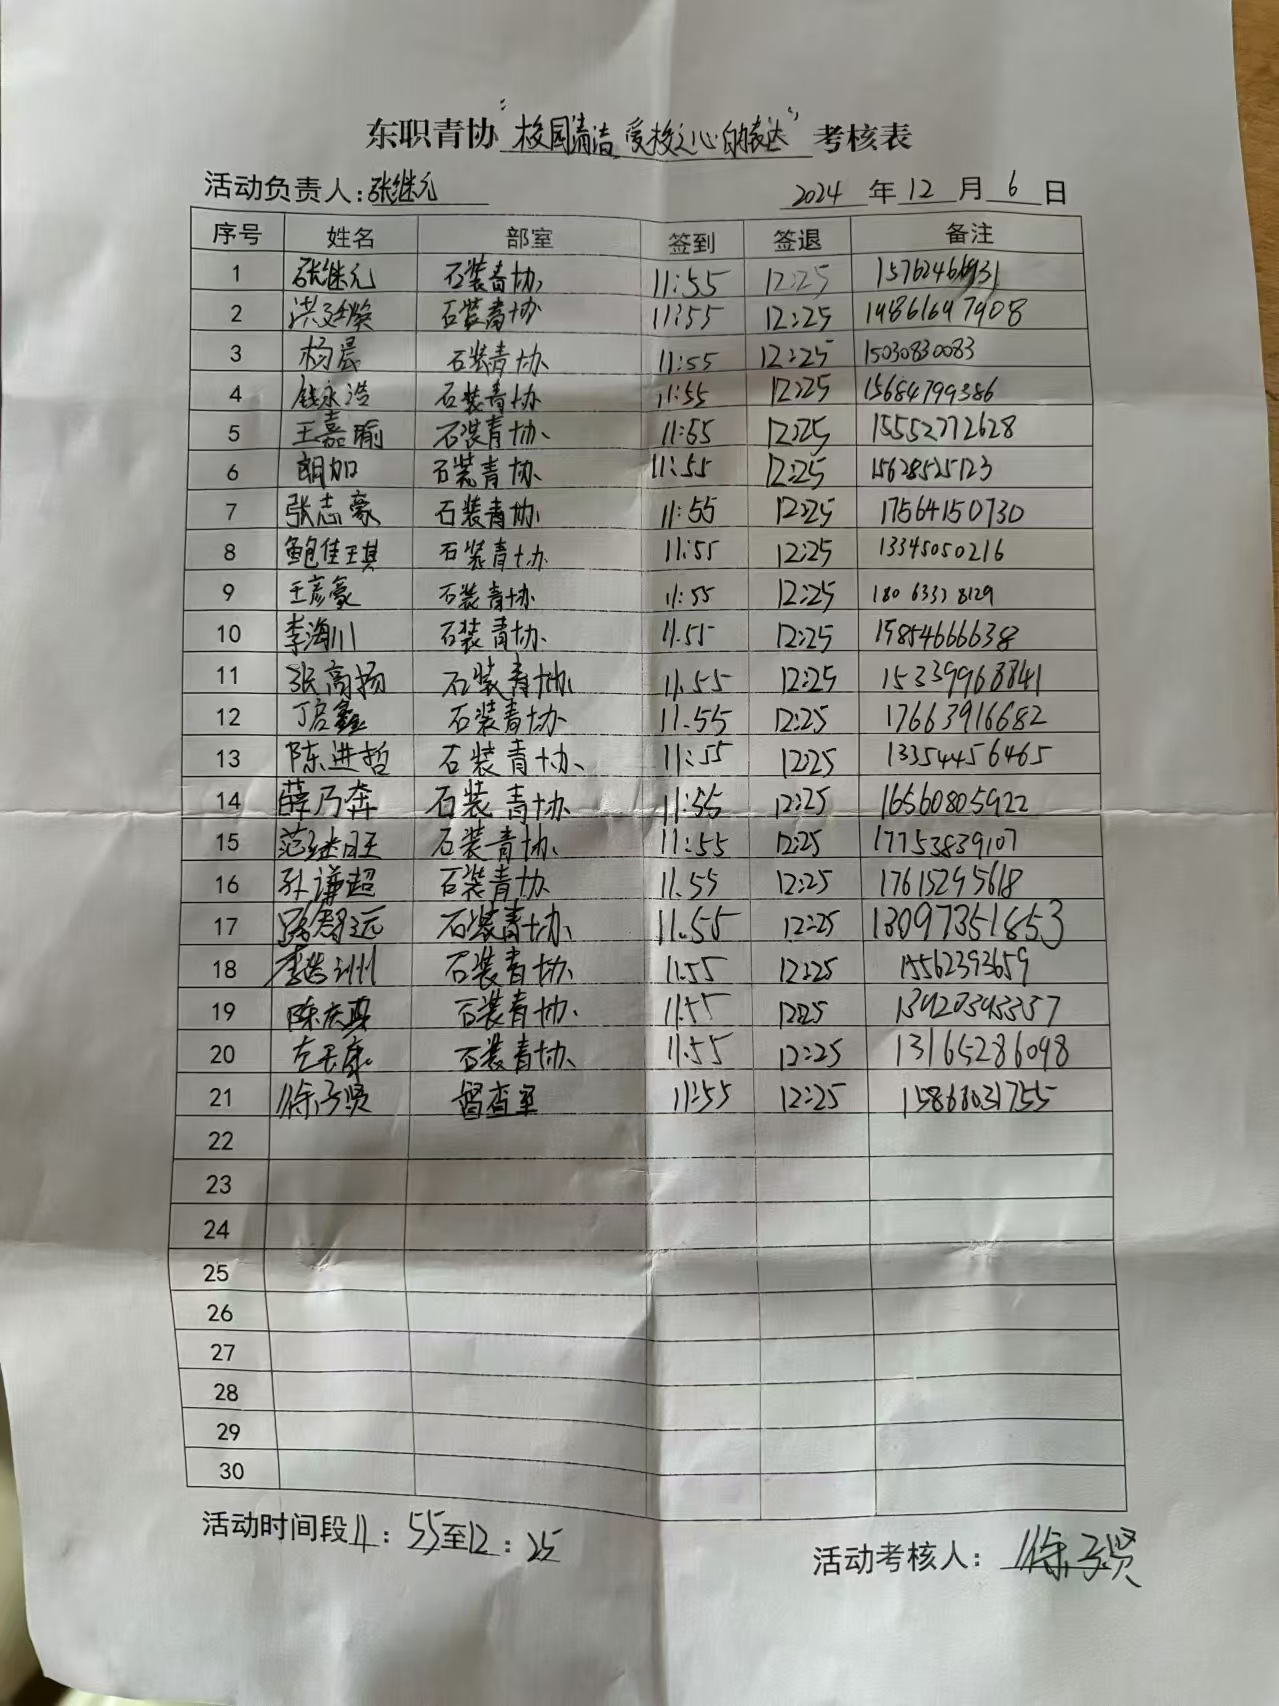 东职青协“校园清洁 爱校之心的表达”考核表
活动负责人:张继元 2024 年 12 月 6 日
序号 姓名 部室 签到 签退 备注
1 张继元 石装青协 11:55 12:25
2 洪廷 石装青协 11:55 12:25 19861647908
3 杨晨 石装青协 11:55 12:25 15030830083
4 钱永浩 石装青协 11:55 12:25 15684799386
5 王嘉瑜 石装青协 11:55 12:25 15552772628
6 胡加 石装青协 11:55 12:25 15628525123
7 张志豪 石装青协 11:55 12:25 17564150730
8 鲍佳琪 石装青协 11:55 12:25 13345050216
9 王彦豪 石装青协 11:55 12:25 180 6337 8129
10 李海川 石装青协 11.55 12:25 19854666638
11 张高扬 石装青协 11.55 12:25 15339968841
12 丁启鑫 石装青协 11.55 12:25 17663916682
13 陈进哲 石装青协 11:55 12:25 13354456465
14 薛乃奔 石装青协 11:55 12:25 16560805922
15 范继旺 石装青协 11:55 12:25 17753839107
16 孙谦超 石装青协 11.55 12:25 17615295618
17 智远 石装青协 11.55 12:25 13097351853
18 李 石装青协 11.55 12:25 15562393659
19 陈庆 石装青协 11:55 12:25 13420343357
20 左 康 石装青协 11.55 12:25 13165286098
21 徐子贤 督查室 11:55 12:25 15868031755
22
23
24
25
26
27
28
29
30
活动时间段11:55至12:25
活动考核人:徐子贤